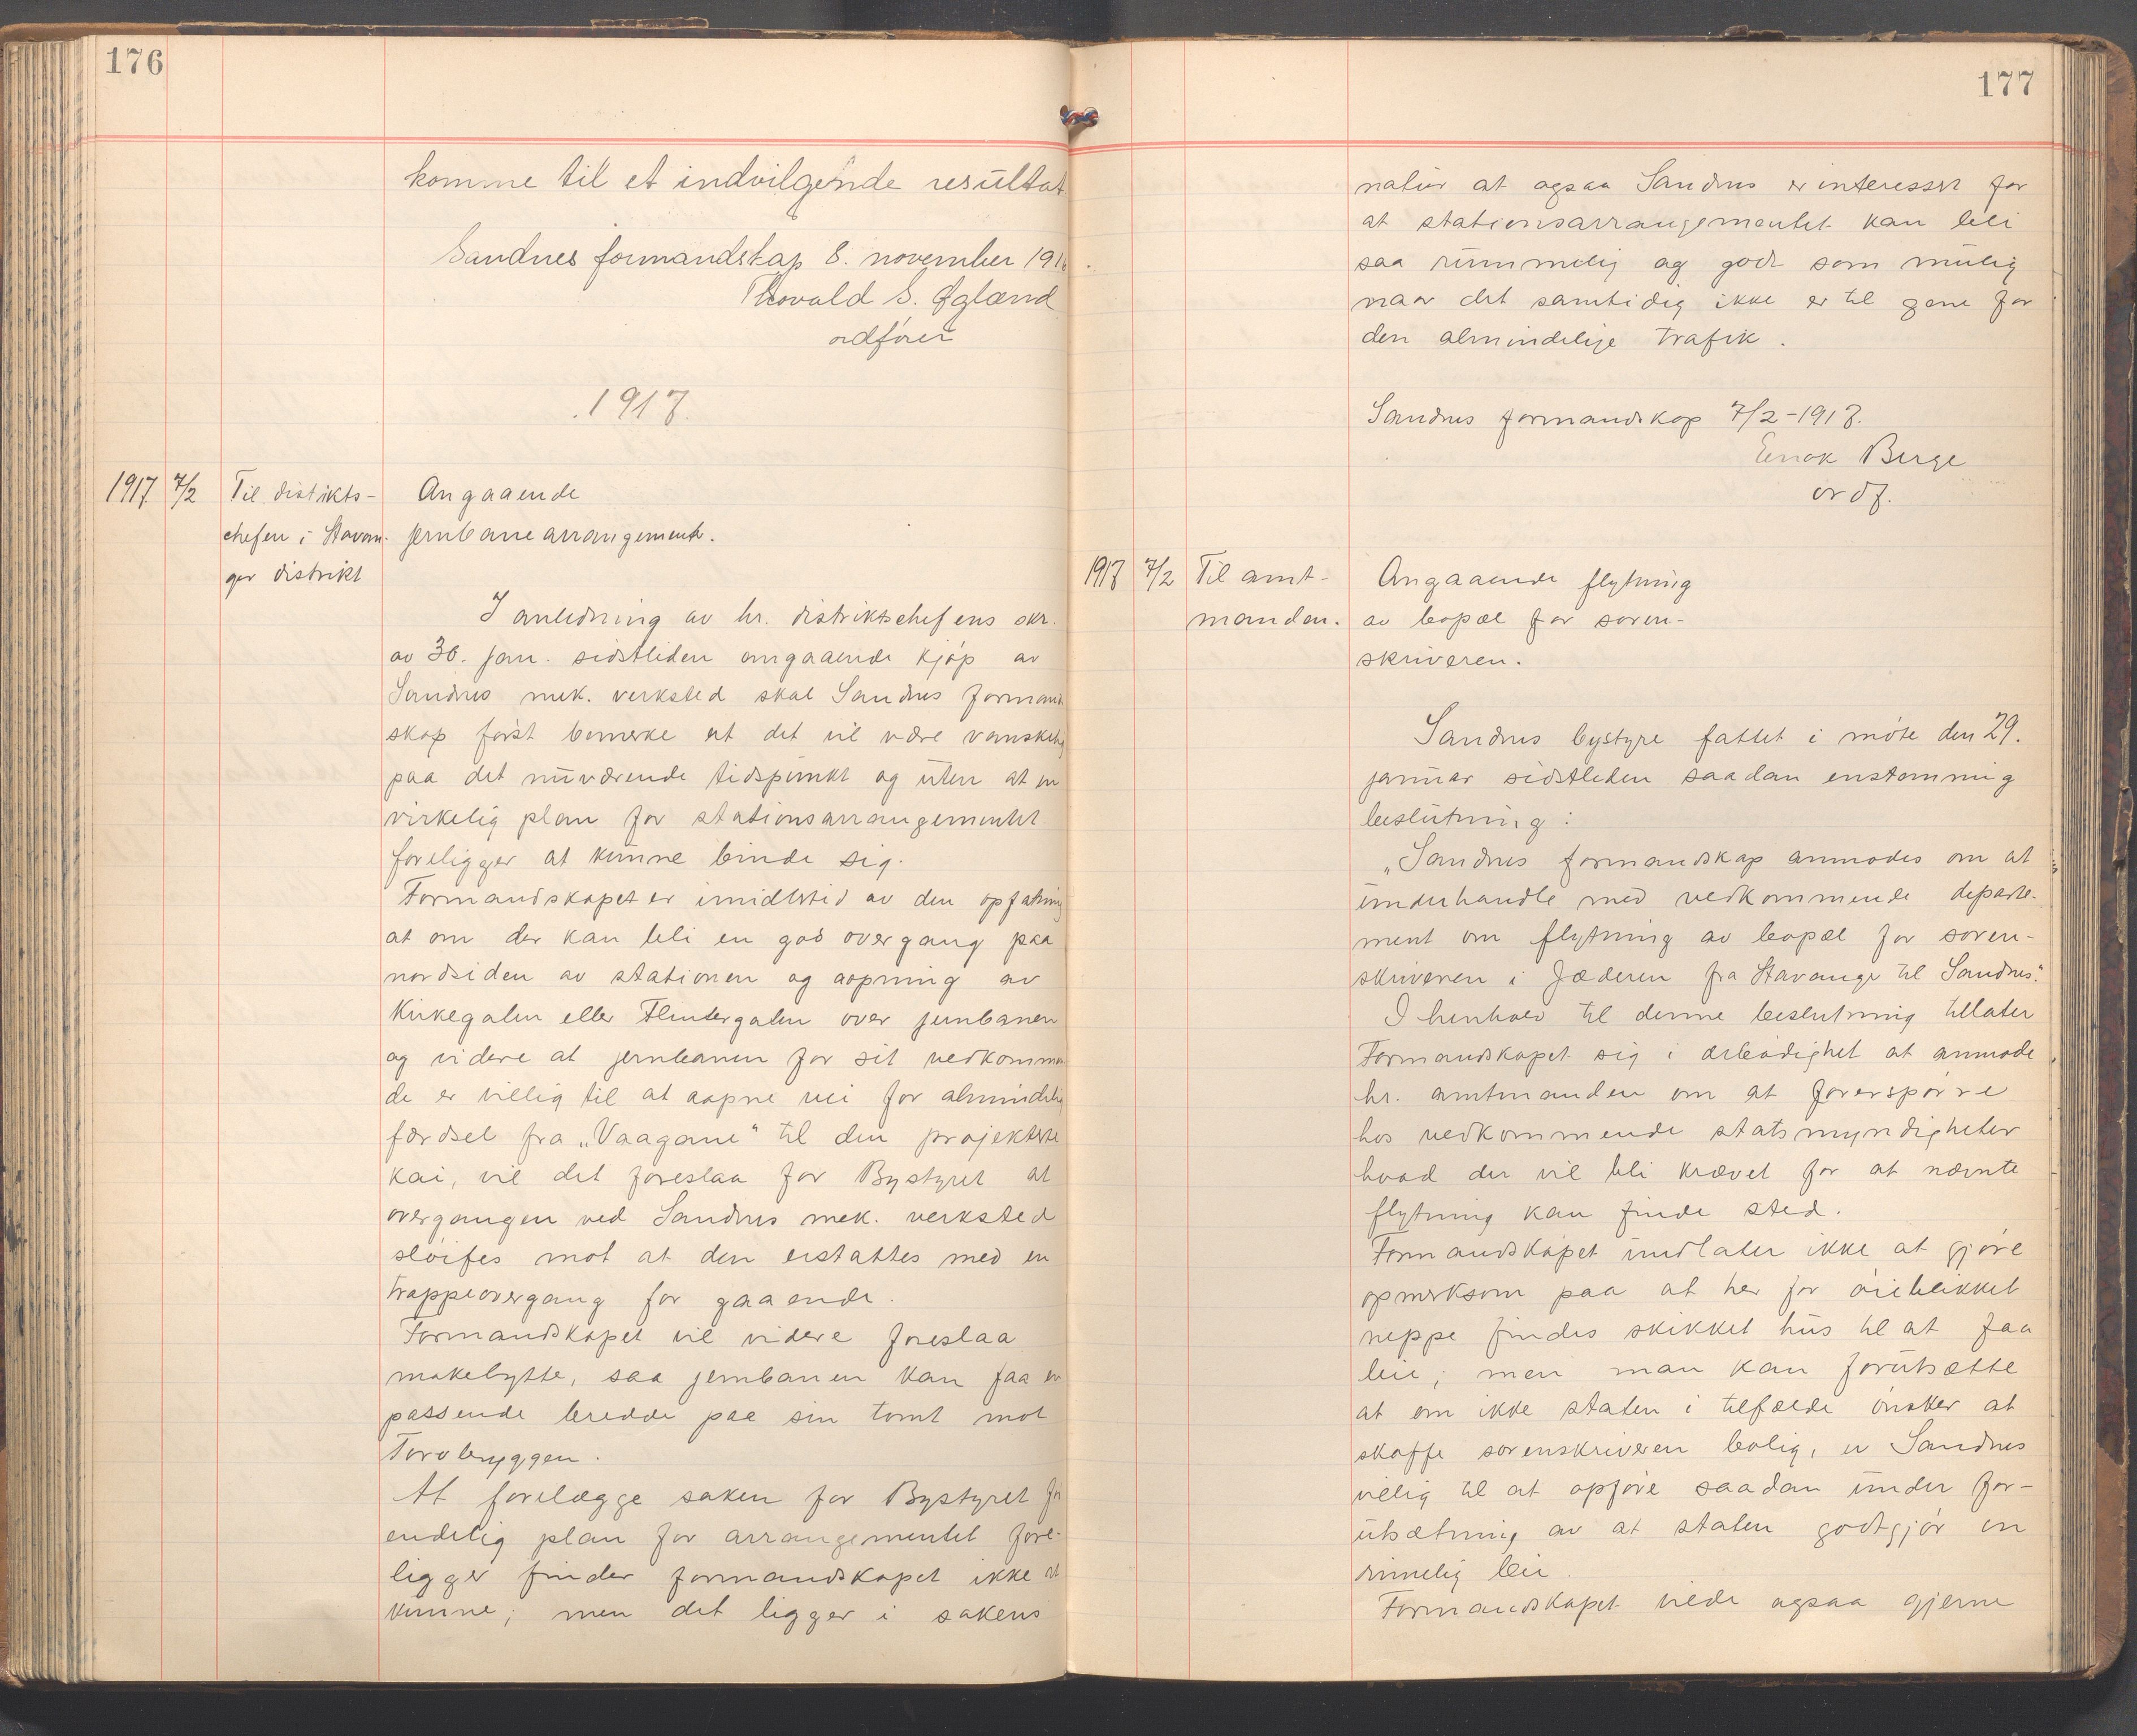 176
komme til et indvilgende resultat
Sandnes formandskap 8. november 191
Thorvald S. Øgland
ordfører
1917.
1917 7/2 Til distikts-
chefen i Stavan-
ger distrikt
Angaaende
jernbanearrangement.
I anledning av hr. distriktschefens skr.
av 30. jan. sidstleden angaaende kjøp av
Sandnes mek. verksted skal Sandnes formand
skap først bemerke at det vil være vanskelig
paa det nuværende tidspunkt og uten at en
virkelig plan for stationsarrangementet
foreligger at kunne binde sig.
Formandskapet er imidlertid av den opfatning
at om der kan bli en god overgang paa
nordsiden av stationen og aapning av
Kirkegaten eller Flintergaten over jernbanen
og videre at jernbanen for sit vedkommen
de er villig til at aapne vei for almindelig
færdsel fra „Vaagane" til den projekterte
kai, vil det foreslaa for Bystyret at
overgangen ved Sandnes mek. verksted
sløifes mot at den erstattes med en
trappeovergang for gaaende.
Formandskapet vil videre foreslaa
makebytte, saa jernbanen kan faa en
passende bredde paa sin tomt mot
Torvbryggen.
At forelægge saken for Bystyret før
endelig plan for arrangementet fore-
ligger finder formandskapet ikke at
kunne; men det ligger i sakens
177
natur at ogsaa Sandnes er interessert for
at stationsarrangementet kan bli
saa rummelig og godt som mulig
naar det samtidig ikke er til gene for
den almindelige trafik.
Sandnes formandskap 7/2-1917.
Enok Berge
ordf.
1917 7/2 Til amt-
manden.
Angaaende flytning
av bopæl for soren-
skriveren.
Sandnes bystyre fattet i møte den 29.
januar sidstleden saadan enstemmig
beslutning:
„Sandnes formandskap anmodes om at
underhandle med vedkommende departe-
ment om flytning av bopæl for soren-
skriveren i Jæderen fra Stavanger til Sandnes".
I henhold til denne beslutning tillater
Formandskapet sig i ærbødighet at anmode
hr. amtmanden om at forespørre
hos vedkommende statsmyndigheter
hvad der vil bli krævet for at nævnte
flytning kan finde sted.
Formandskapet undlater ikke at gjøre
opmerksom paa at her for øieblikket
neppe findes skikket hus til at faa
leie; men man kan forutsætte
at om ikke staten i tilfælde ønsker at
skaffe sorenskriveren bolig, er Sandnes
villig til at opføre saadan under for-
utsætning av at staten godtgjør en
rimelig leie.
Formandskapet vilde ogsaa gjerne